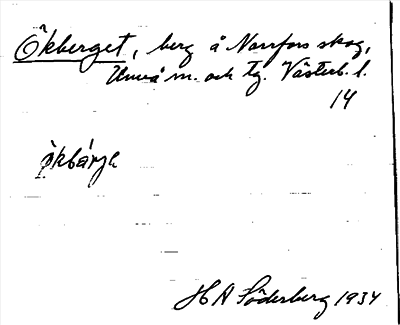 Ökberget, berg å Norrfors skog,
Umeå m. och tg. Västerb. l.
14
ö̀kbárjɛ
H A Söderberg 1934